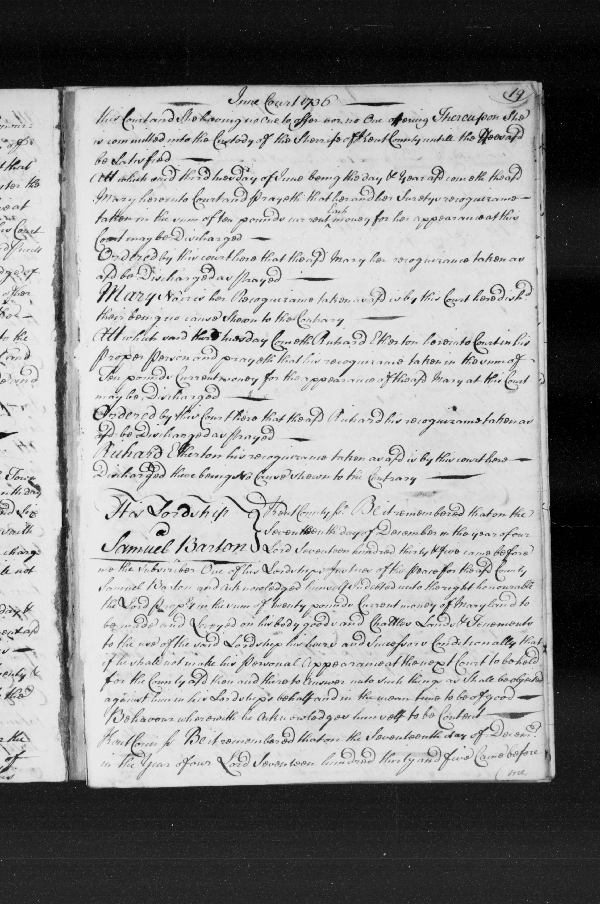 June Court 1736
19
this Court and She having no One to offer nor no One offering Thereupon She
is committed into the Custody of the Sherife of Kent County untill the ffees afd
be Satisfied
Att which said third tuesday of June being the day & Year afd cometh the afd
Mary hereunto Court and prayeth that her and her Suretys recognizance
taken in the sum of ten pounds current Cash money for her appearance at this
Court may be Discharged
Ordered by this court here that the afd Mary her recognizance taken as
afd be Discharged as prayed
Mary her Recognizance taken as afd is by this Court here disch
there being no cause Shewn to the Contrary
Att which said third tuesday Cometh Richard Etherton hereinto Court in his
proper Person and prayeth that his recognizance taken in the sum of
Ten pounds Current money for the appearance of the afd Mary at this Court
may be Discharged
Ordered by this Court here that the afd Richard his recognizance taken as
afd be Discharged as prayed
Richard Etherton his recognizance taken as afd is by this court here
Discharged there being No Cause Shewn to the Contrary
His Lordship
Samuel Barton
Kent County ss Be it remembered that on the
Seventeenth day of December in the year of our
Lord Seventeen hundred thirty & five came before
me the Subscriber One of his Lordships Justices of the Peace for the afd County
Samuel Barton and Acknowledged himself indebted unto the right honourable
the Lord Propry in the sum of twenty pounds Current money of Maryland to
be made and Levyed on his body goods and Chattles Lands & Tenements
to the use of the said Lordship his heirs and Successors Conditionally that
if he shall not make his Personal Appearance at the next Court to be held
for the County afd then and there to Answer unto such things as Shall be objected
against him in his Lordships behalf and in the mean time to be of good
Behavour wherewith he Acknowledges himself to be Content
Kent County ss Be it remembered that on the Seventeenth day of Decem:
in the Year of our Lord Seventeen hundred thirty and five Came before
me